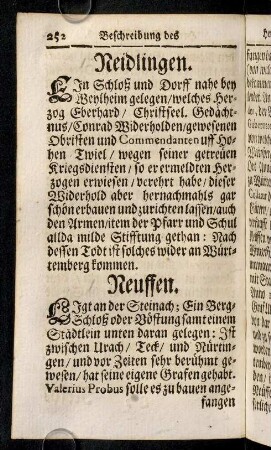 252 Beschreibung des
Neidlingen.
EIn Schloß und Dorff nahe bey
Weylheim gelegen/welches Her-
zog Eberhard/ Christseel. Gedächt-
nus/Conrad Widerholden/gewesenen
Obristen und Commendanten uff Ho-
hen Twiel/ wegen seiner getreuen
Kriegsdiensten/ so er ermeldten Her-
zogen erwiesen/ verehrt habe/ dieser
Widerhold aber hernachmahls gar
schön erbauen und zurichten lassen/auch
den Armen/item der Pfarr und Schul
allda milde Stifftung gethan: Nach
dessen Todt ist solches wider an Würt-
temberg kommen.
Neuffen.
LIgt an der Steinach; Ein Berg-
Schloß oder Vöstung samt einem
Städtlein unten daran gelegen; Ist
zwischen Urach/ Teck/ und Nürtin-
gen/ und vor Zeiten sehr berühmt ge-
wesen/ hat seine eigene Grafen gehabt.
Valerius Probus solle es zu bauen ange-
fangen